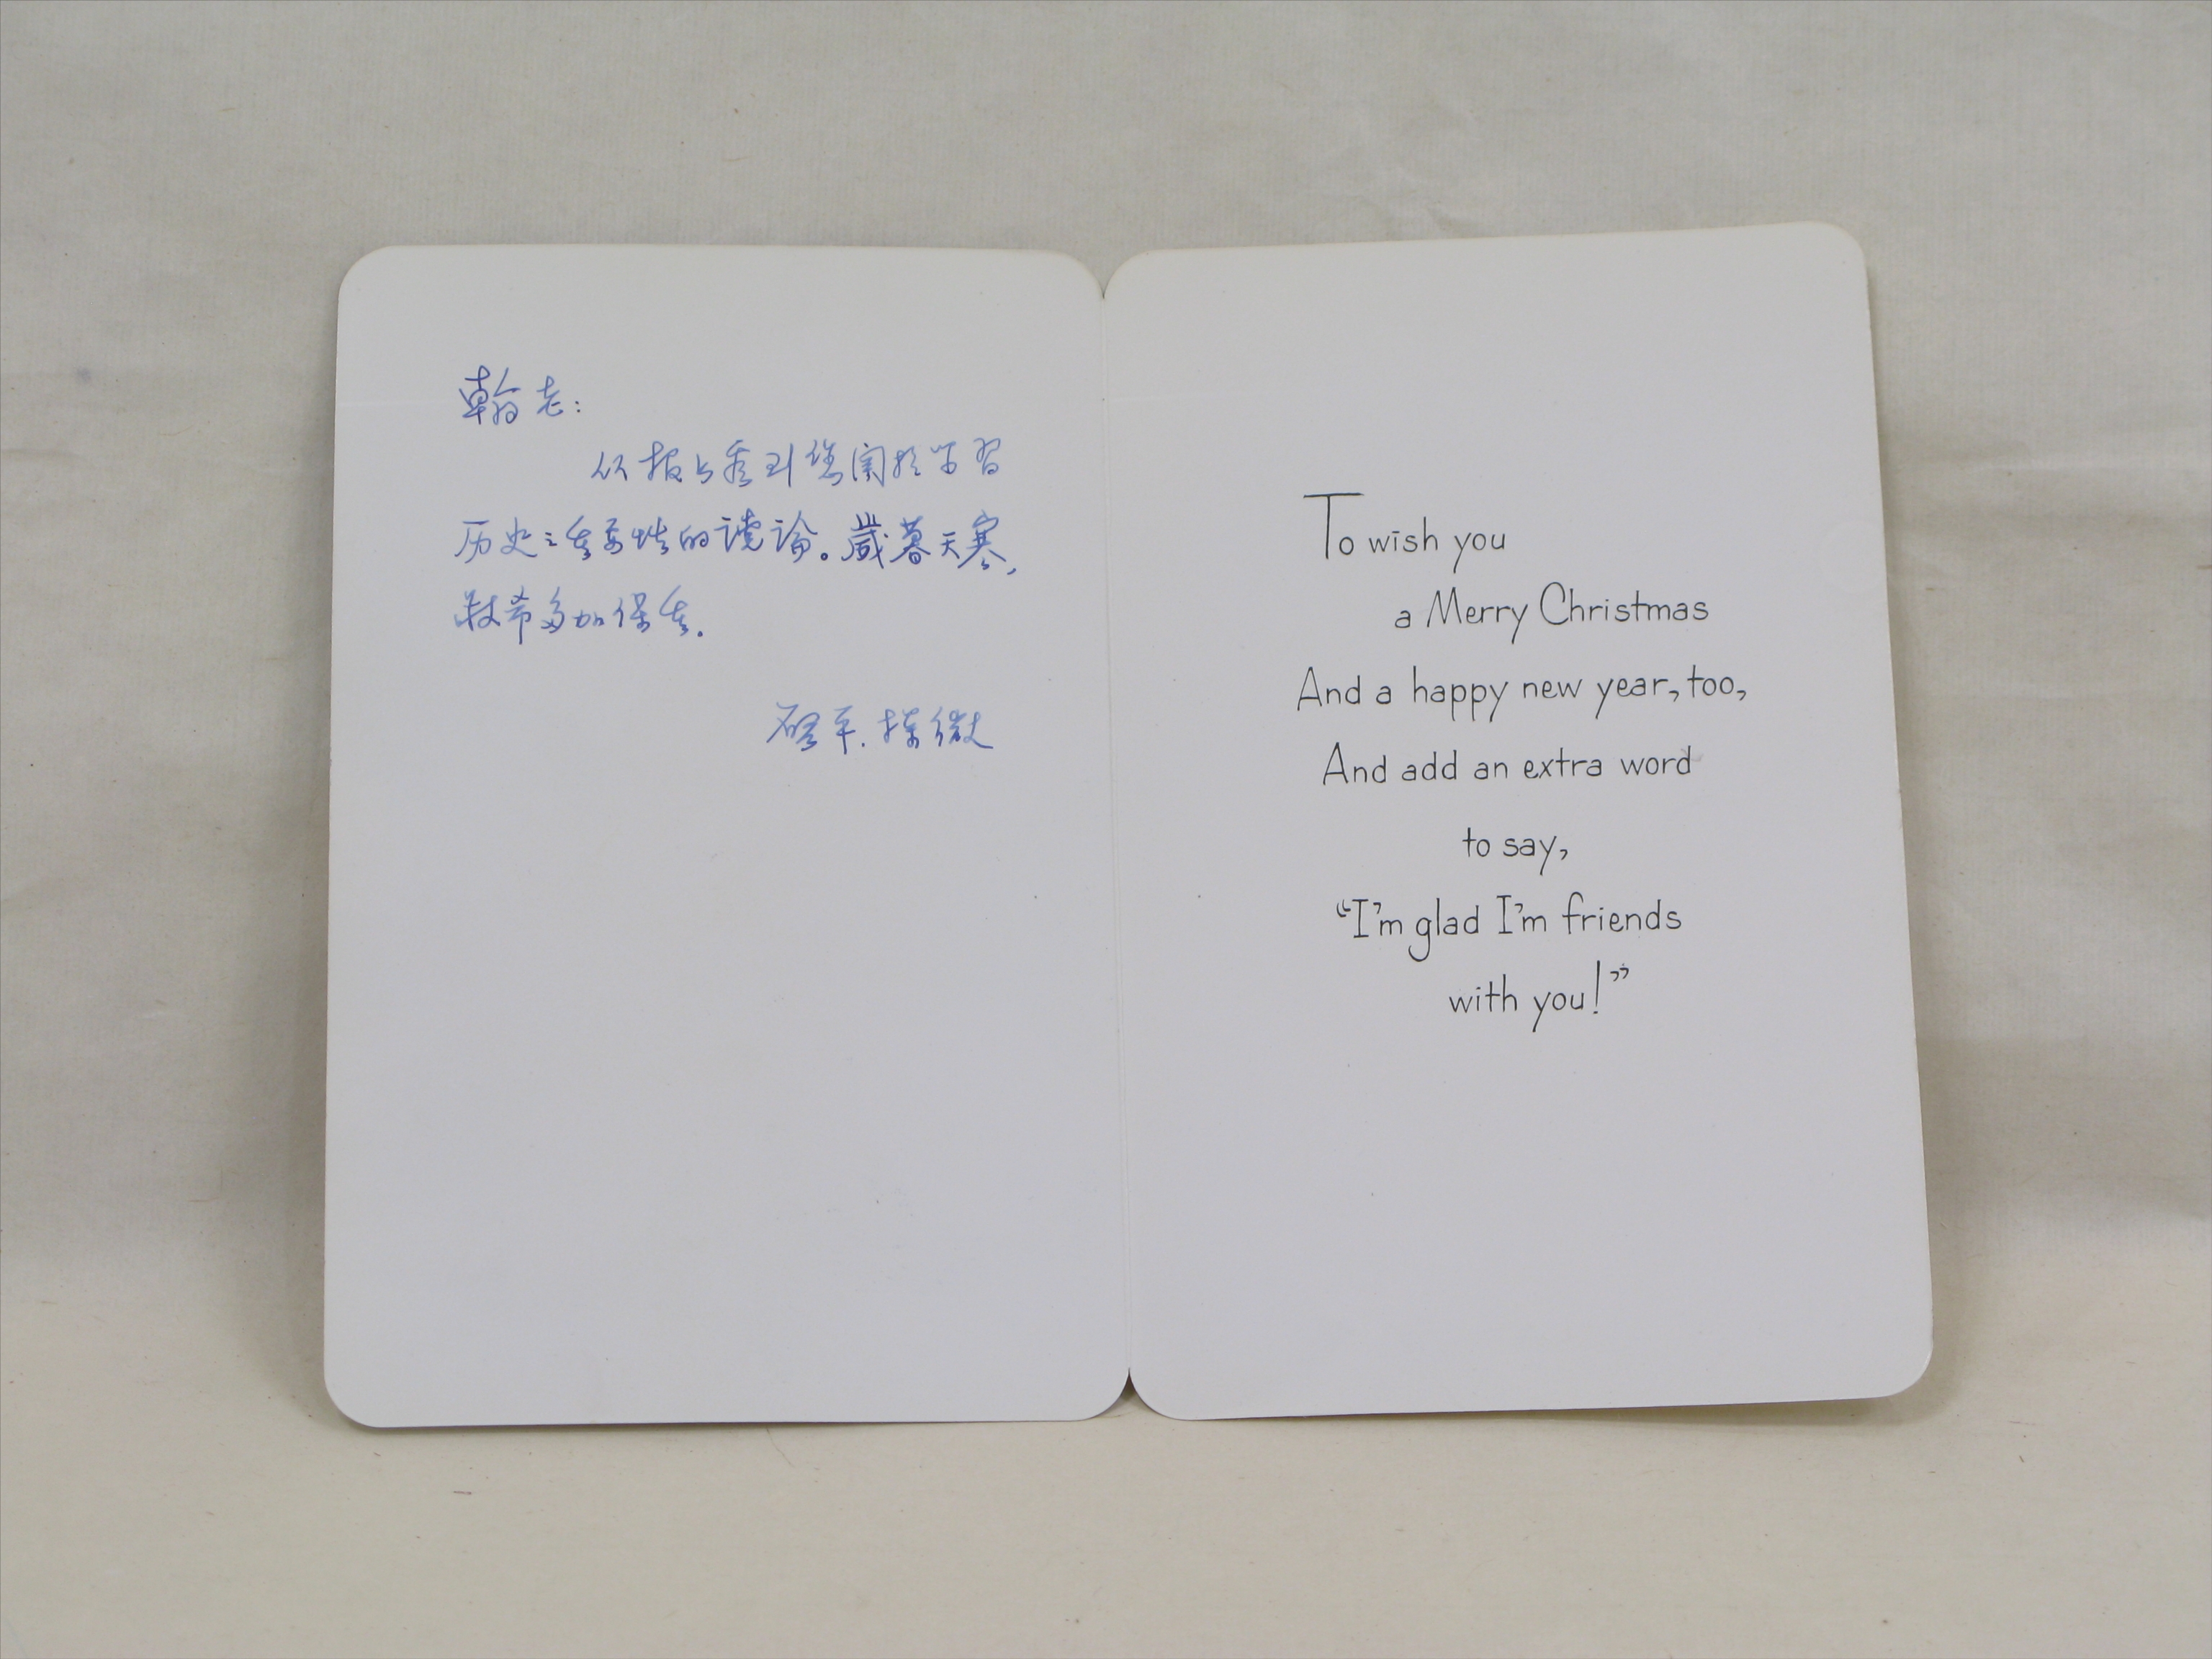 翰老:
从报上看到您關於学习
历史之重要性的谠论。歲暮天寒,
敬希多加保重.
To wish you
a Merry Christmas
And a happy new year, too,
And add an extra word
to say,
“I’m glad I’m friends
with you!”